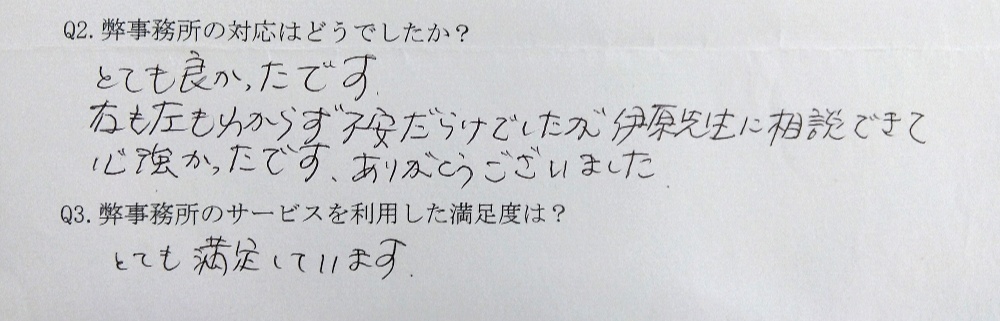 Q2. 弊事務所の対応はどうでしたか？
とても良かったです.
右も左もわからず不安だらけでしたが伊原先生に相談できて
心強かったです、ありがとうございました.
Q3. 弊事務所のサービスを利用した満足度は？
とても満足しています.